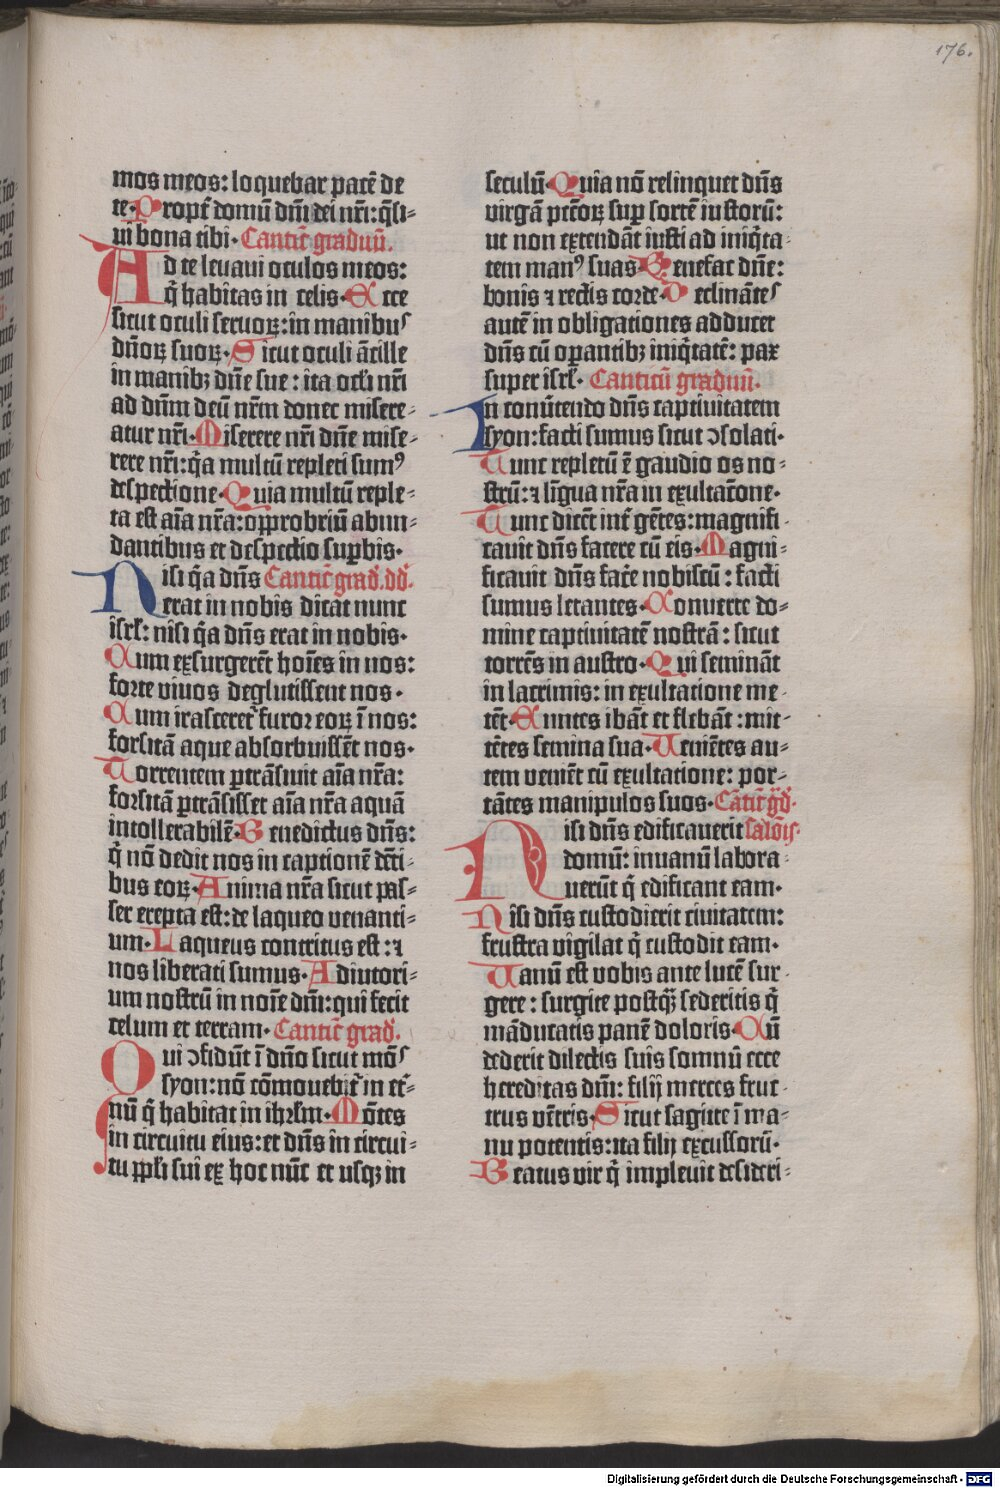 176.
mos meos: loquebar pacē de
te. Propt̄ domū dn̄i dei nr̄i: q̄si-
ui bona tibi. Canticū graduū.
Ad te leuaui oculos meos:
q̄ habitas in celis. Ecce
sicut oculi seruoꝝ: in manibus
dn̄oꝝ suoꝝ. Sicut oculi ācille
in manibꝫ dn̄e sue: ita oc̄li nr̄i
ad dn̄m deū nr̄m donec misere-
atur nr̄i. Miserere nr̄i dn̄e mise-
rere nr̄i: q̄a multū repleti sumꝰ
despectione. Quia multū reple-
ta est aīa nr̄a: opprobriū abun-
dantibus et despectio suꝑbis.
Nisi q̄a dn̄s Canticū grad. dd.
erat in nobis dicat nunc
isrl̄: nisi q̄a dn̄s erat in nobis.
Cum exsurgerēt hoīes in nos:
forte viuos deglutissent nos.
Cum irasceret̄ furor eoꝝ ī nos:
forsitā aque absorbuissēt nos.
Torrentem ꝑtrāsiuit aīa nr̄a:
forsitā ꝑtrāsisset aīa nr̄a aquā
intollerabilē. Benedictus dn̄s:
q̄ nō dedit nos in captionē dēti-
bus eoꝝ. Anima nr̄a sicut pas-
ser erepta est: de laqueo venanti-
um. Laqueus contritus est: ⁊
nos liberati sumus. Adiutori-
um nostrū in noīe dn̄i: qui fecit
celum et terram. Canticū grad.
Qui ↄfidūt ī dn̄o sicut mōs
syon: nō cōmouebit̄ in et̄-
nū q̄ habitat in ihrl̄m. Mōtes
in circuitu eius: et dn̄s in circui-
tu ppl̄i sui ex hoc nūc et usqꝫ in
seculū. Quia nō relinquet dn̄s
virgā pctōꝝ suꝑ sortē iustorū:
ut non extendāt iusti ad iniq̄ta-
tem manꝰ suas. Benefac dn̄e:
bonis ⁊ rectis corde. Declinātes
autē in obligationes adducet
dn̄s cū oꝑantibꝫ iniq̄tatē: pax
super isrl̄. Canticū graduū.
In conūtendo dn̄s captiuitatem
syon: facti sumus sicut ↄsolati.
Tunc repletū ē gaudio os no-
strū: ⁊ līgua nr̄a in exultacōne.
Tunc dicēt int̄ gētes: magnifi-
cauit dn̄s facere cū eis. Magni-
ficauit dn̄s fac̄e nobiscū: facti
sumus letantes. Conuerte do-
mine captiuitatē nostrā: sicut
torrēs in austro. Qui semināt
in lacrimis: in exultatione me-
tēt. Euntes ibāt et flebāt: mit-
tētes semina sua. Veniētes au-
tem veniēt cū exultatione: por-
tātes manipulos suos. Cātic̄ gd.
Nisi dn̄s edificauerit salōis.
domū: inuanū labora-
uerūt q̄ edificant eam.
Nisi dn̄s custodierit ciuitatem:
frustra vigilat q̄ custodit eam.
Vanū est vobis ante lucē sur-
gere: surgite postqꝫ sederitis q̄
māducatis panē doloris. Cū
dederit dilectis suis somnū ecce
hereditas dn̄i: filij merces fruc-
tus vētris. Sicut sagitte ī ma-
nu potentis: ita filij excussorū.
Beatus vir q̄ impleuit desideri-
Digitalisierung gefördert durch die Deutsche Forschungsgemeinschaft - DFG